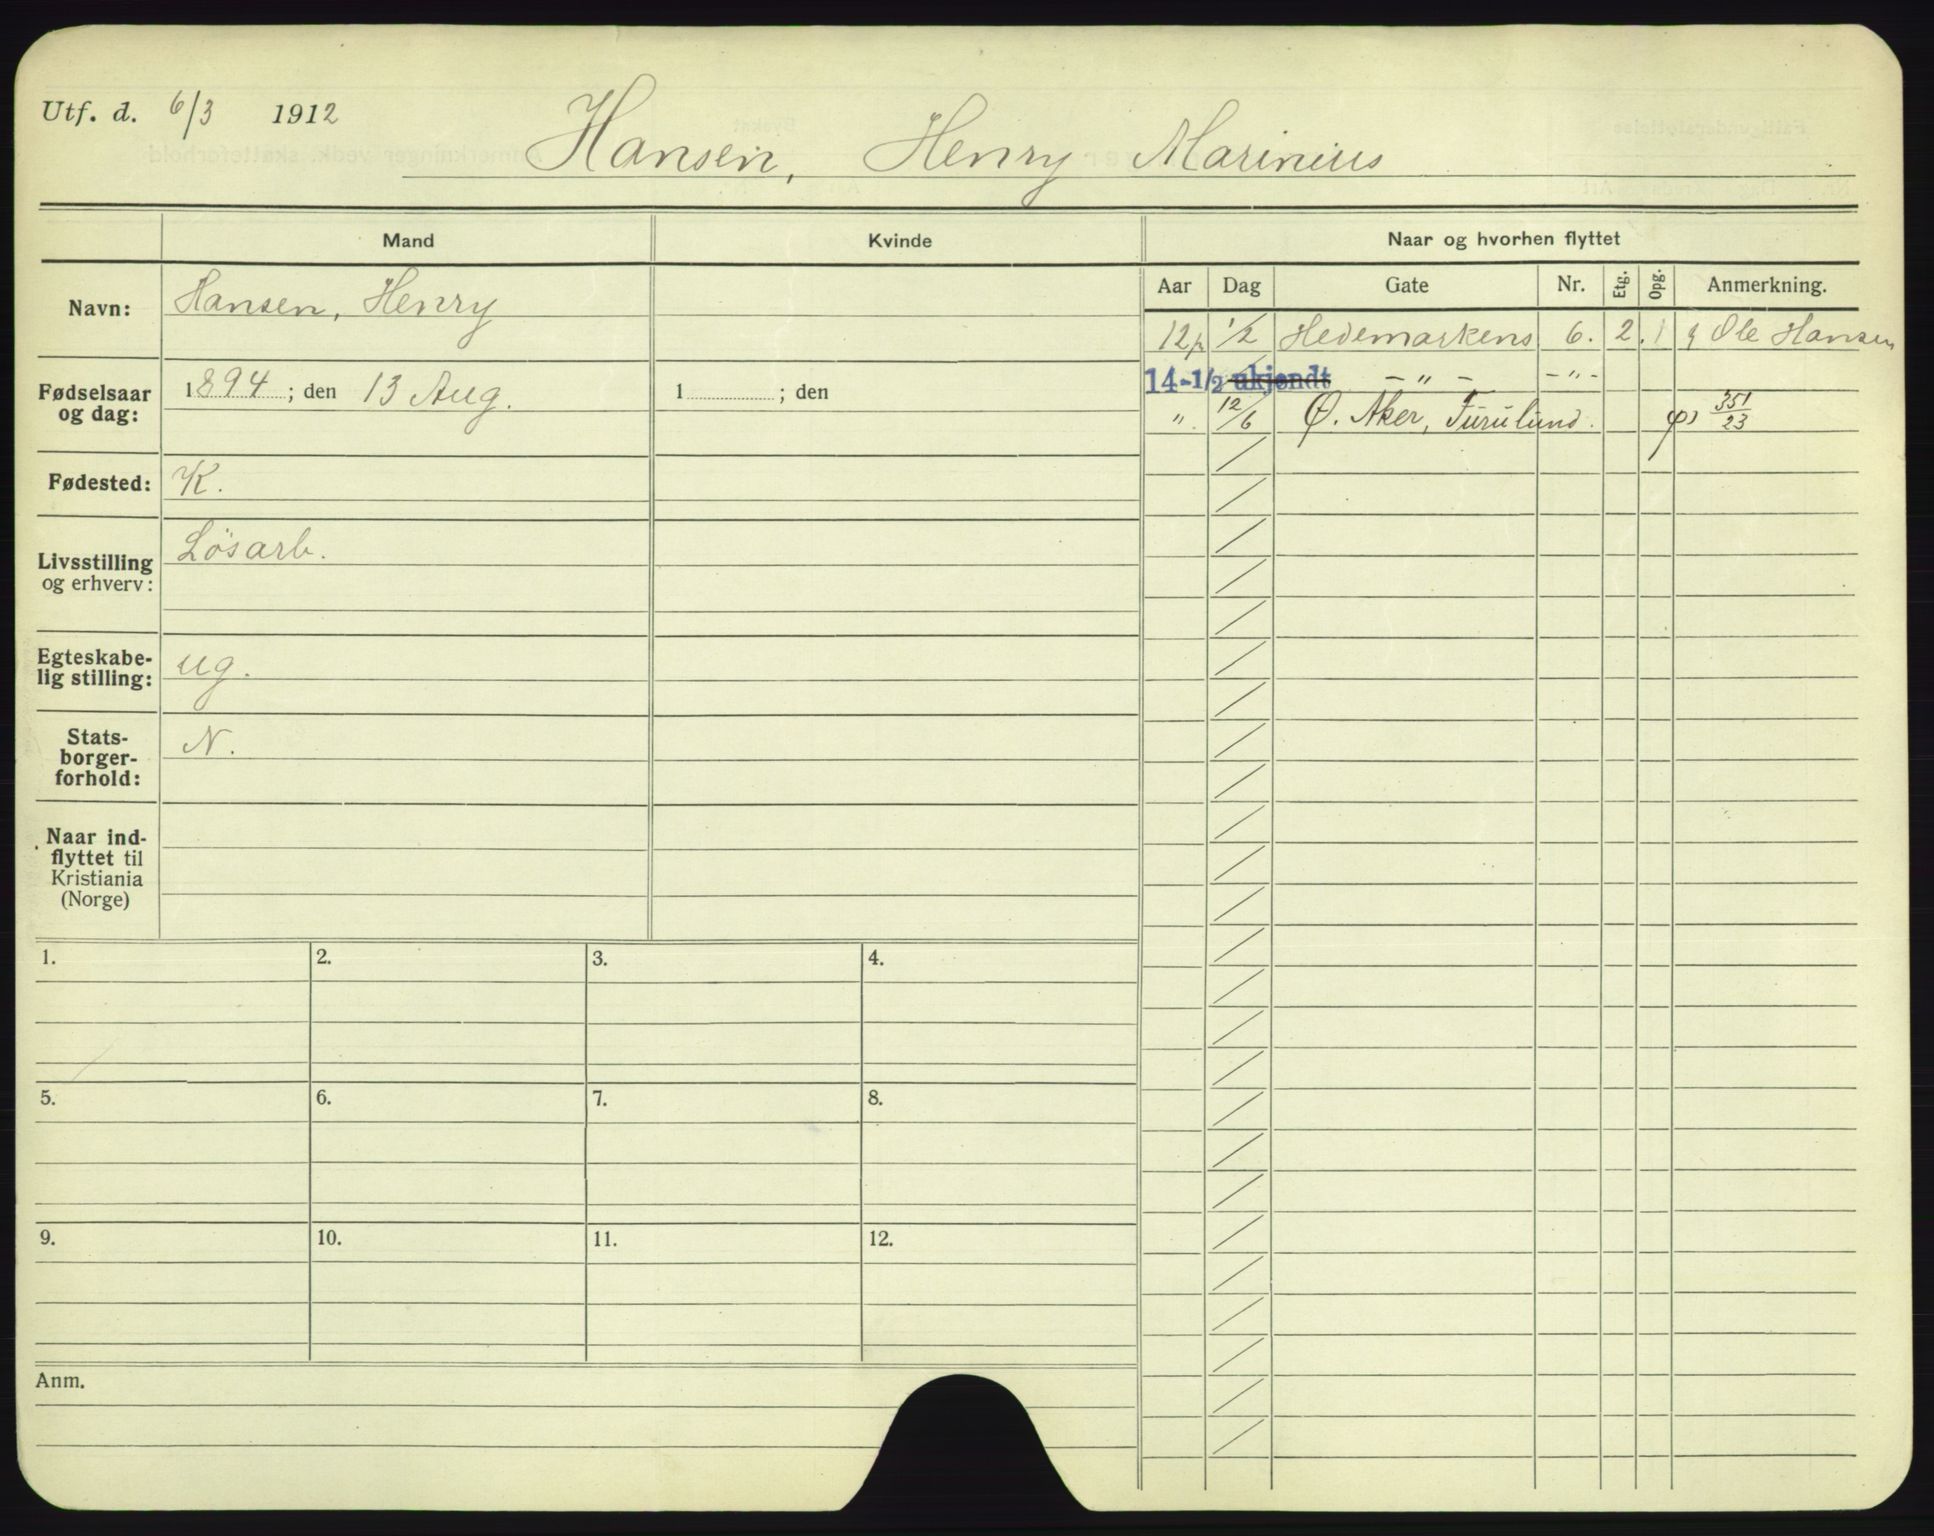 Utf. d. 6/3 1912
Hansen, Henry Marinius
Mand
Kvinde
Naar og hvorhen flyttet
Navn:
Hansen, Henry
Aar
Dag
Gate
Nr.
Etg.
Opg.
Anmerkning.
12 1/2 Hedemarkens 6. 2. 1 Ole Hansen
14-1/2 ukjendt - " - - " -
". 12/6 Ø. Aker, Furulund. 351/23
Fødselsaar
og dag:
1894 ; den 13 Aug.
1 ; den
Fødested:
K.
Livsstilling
og erhverv:
Løsarb.
Egteskabe-
lig stilling:
ug.
Stats-
borger-
forhold:
N.
Naar ind-
flyttet til
Kristiania
(Norge)
1.
2.
3.
4.
5.
6.
7.
8.
9.
10.
11.
12.
Anm.